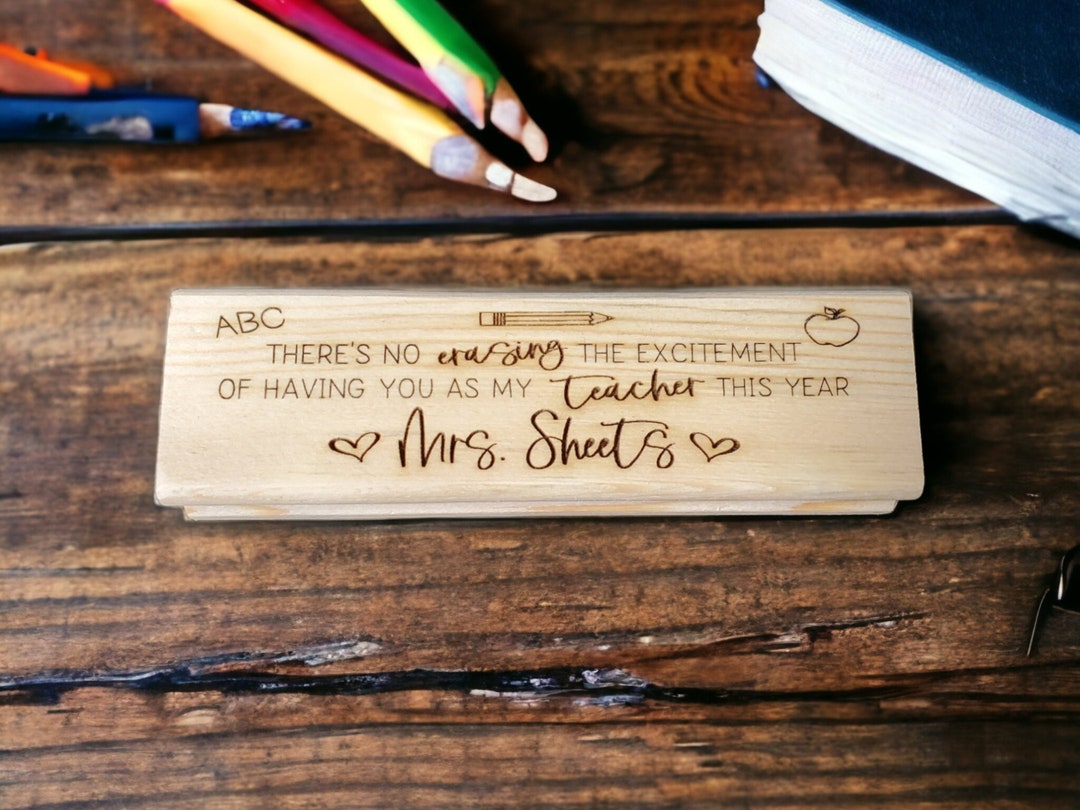 ABC
THERE'S NO erasing THE EXCITEMENT
OF HAVING YOU AS MY Teacher THIS YEAR
Mrs. Sheets